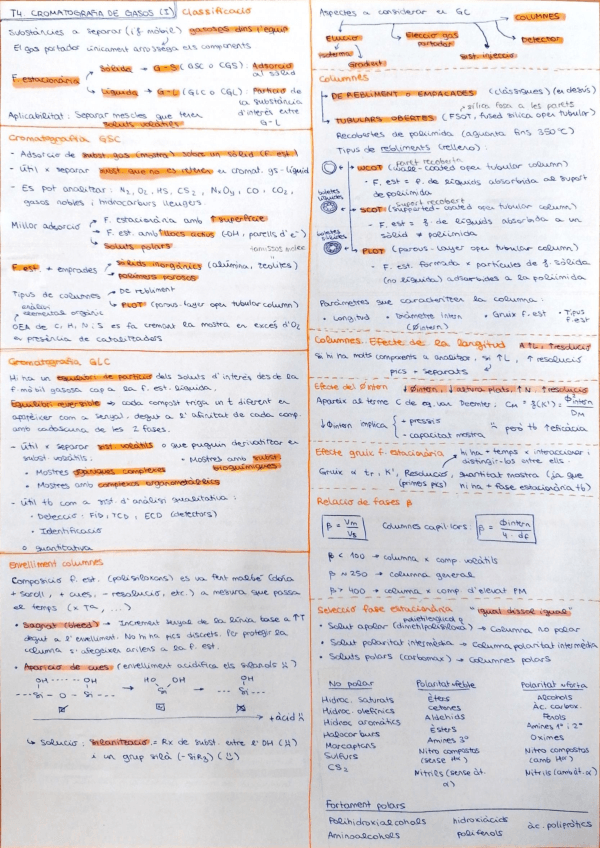 T4. CROMATOGRAFIA DE GASOS (I) Classificació
Substàncies a separar (i f. mòbil) gasoses dins l'equip
El gas portador únicament arrossega els components
F. estacionària
Sòlida → G-S (GSC o CGS): Adsorció al sòlid
Líquida → G-L (GLC o CGL): Partició de la substància d'interès entre G-L
Aplicabilitat: Separar mescles que tenen soluts volàtils
Cromatografia GSC
- Adsorció de subst. gas (mostra) sobre un sòlid (F. est.)
- Útil x separar subst que no es retenen en cromat. gs-líquid
- Es pot analitzar: N2, O2, HS, CS2, NxOy, CO, CO2,
gasos nobles i hidrocarburs lleugers.
Millor adsorció
F. estacionària amb ↑ superfície
F. est. amb llocs actius (OH, parells d'e-)
Soluts polars
F. est + emprades
Sòlids inorgànics (alúmina, zeolites)
Polímers porosos
Tipus de columnes
DE rebliment
PLOT (porous-layer open tubular column)
anàlisi elemental orgànic
OEA de C, H, N i S es fa cremant la mostra en excés d'O2
en presència de catalitzadors
Cromatografia GLC
Hi ha un equilibri de partició dels soluts d'interès des de la
F. mòbil gasosa cap a la f. est. líquida.
Equilibri reversible → cada compost triga un t diferent en
aparèixer com a senyal, degut a l'afinitat de cada comp.
amb cadascuna de les 2 fases.
- Útil x separar sist volàtils o que puguin derivatitzar en
subst. volàtils:
• Mostres gasoses complexes
• Mostres amb subst. bioquímiques
• Mostres amb complexos organometàl·lics
- Útil tb com a inst. d'anàlisi qualitativa:
• Detecció: FID, TCD, ECD (detectors)
• Identificació
o quantitativa
Envelliment columnes
Composició f. est. (polisiloxans) es va fent malbé (dóna
+ soroll, + cues, - resolució, etc.) a mesura que passa
el temps (x Ta, ...)
• Sagnat (bleed) → Increment senyal de la línia base a ↑T
degut a l'envelliment. No hi ha pics discrets. Per protegir la
columna s'afegeixen arilens a la f. est.
• Aparició de cues (envelliment acidifica els silanols)
OH ---- OH → HO OH → OH
-Si - O - Si- -Si Si- -Si
→ +àcid
↳ Solució: silanització = Rx de subst. entre l'OH
i un grup silà (-SiR3)
Aspectes a considerar en GC
COLUMNES
Elució
isoterma
Gradient
Elecció gas portador
Sist. injecció
Detector
Columnes
DE REBLIMENT O EMPACADES (clàssiques) (en desús)
sílica fosa a les parets
TUBULARS OBERTES (FSOT, fused silica open tubular)
Recobertes de poliimida (aguanta fins 350°C)
Tipus de rebliments (relleno):
paret recoberta
WCOT (wall-coated open tubular column)
- F. est = f. de líquids absorbida al suport
de poliimida
suport recobert
SCOT (supported-coated open tubular column)
- F. est = f. de líquids absorbita a un
sòlid + poliimida
PLOT (porous-layer open tubular column)
- F. est. formada x partícules de f. sòlida
(no líquida) adsorbides a la poliimida
Paràmetres que caracteritzen la columna:
• Longitud • Diàmetre intern (Øintern) • Gruix f. est • Tipus f. est
Columnes. Efecte de la longitud ↑L, ↑resolució
Si hi ha molts components a analitzar, si ↑L, ↑ resolució
pics + separats
Efecte del Øintern ↓Øintern, ↓altura plats, ↑N, ↑resolució
Apareix al terme C de eq. Van Deemter, CM = f(K') = Øintern / DM
↓Øintern implica + pressió - capacitat mostra però tb ↑eficàcia
Efecte gruix f. estacionària → hi ha + temps x interaccionar i
distingir-los entre ells.
Gruix ∝ tr, K', Resolució, quantitat mostra (ja que
(primers pics) hi ha + fase estacionària tb)
Relació de fases β
β = Vm / Vs Columnes capil·lars: β = Øintern / 4·df
β < 100 → columna x comp. volàtils
β ≈ 250 → columna general
β > 400 → columna x comp. d'elevat PM
Selecció fase estacionària "igual dissol igual"
• Solut apolar (dimetilpolisiloxà) → Columna no polar
polietilenglicol
• Solut polaritat intermèdia → Columna polaritat intermèdia
• Soluts polars (carbowax) → Columnes polars
No polar Polaritat + feble Polaritat + forta
Hidroc. saturats Èters Alcohols
Hidroc. olefínics cetones Àc. carbox.
Hidroc. aromàtics Aldehids Fenols
Halocarburs Èsters Amines 1a i 2a
Mercaptans Amines 3a Oximes
Sulfurs Nitro compostos (sense Hα) Nitro compostos (amb Hα)
CS2 Nitrils (sense àt. α) Nitrils (amb àt. α)
Fortament polars
Polihidroxialcohols hidroxiàcids àc. polipròtics
Aminoalcohols polifenols